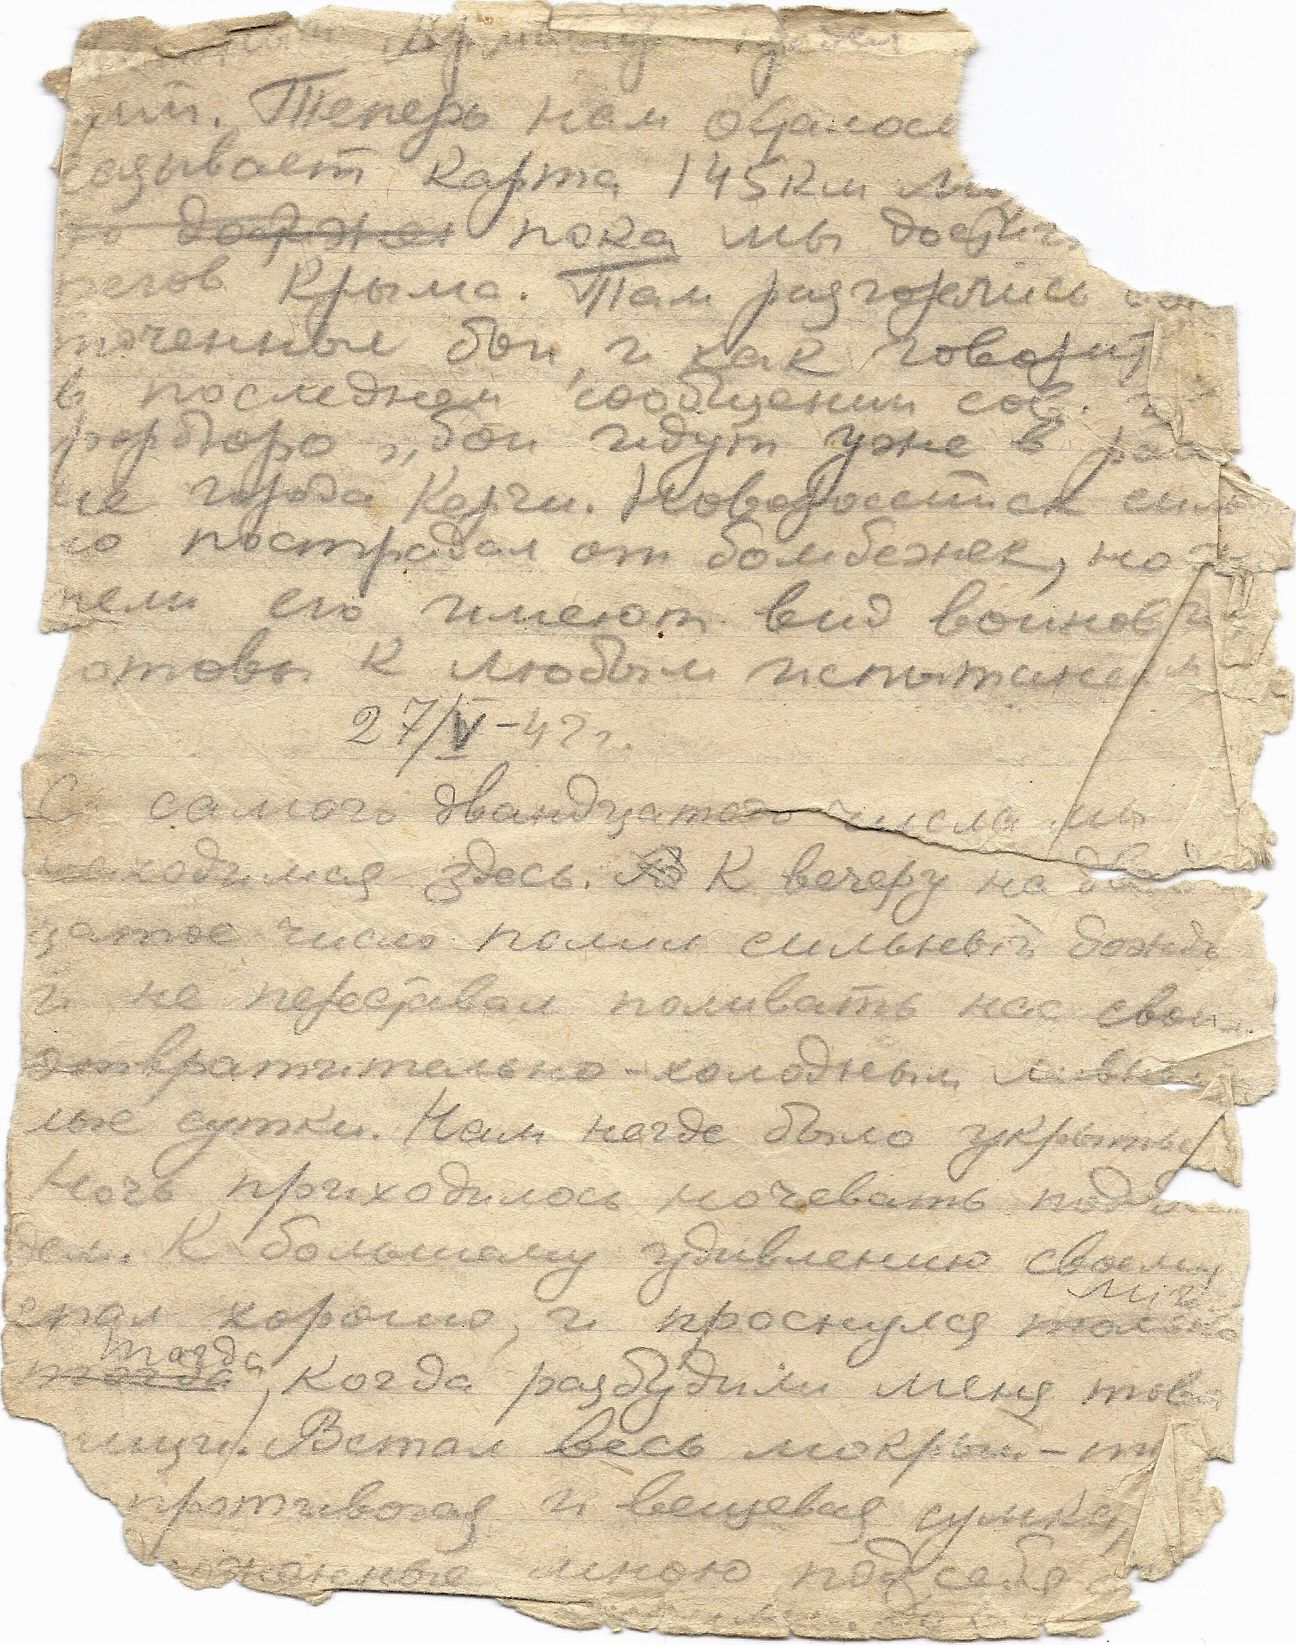 ми. Теперь нам осталось
казывает карта 145 км м
го должен пока мы достиг
регов Крыма. Там разгорелись
точенные бои, и как говорит
в последнем сообщении сов. и
формбюро „бои идут уже в рай
не города Керчи. Новороссийск силь
но пострадал от бомбежек, но жи
тели его имеют вид воинов и
отовы к любым испытаниям
27/V-42г.
С самого двандцатого числа мы
находимся здесь. К вечеру на двад
цатое число полил сильный дождь
и не переставал поливать нас своим
отвратительно-холодным ливнем
лые сутки. Нам негде было укрыться
Ночь приходилось ночевать под
дем. К большому удивлению своему
спал хорошо, и проснулся только лишь
тогда тогда, когда разбудили меня това
рищи. Встал весь мокрый-
противогаз и вещевая сумка,
ложенные мною под себя